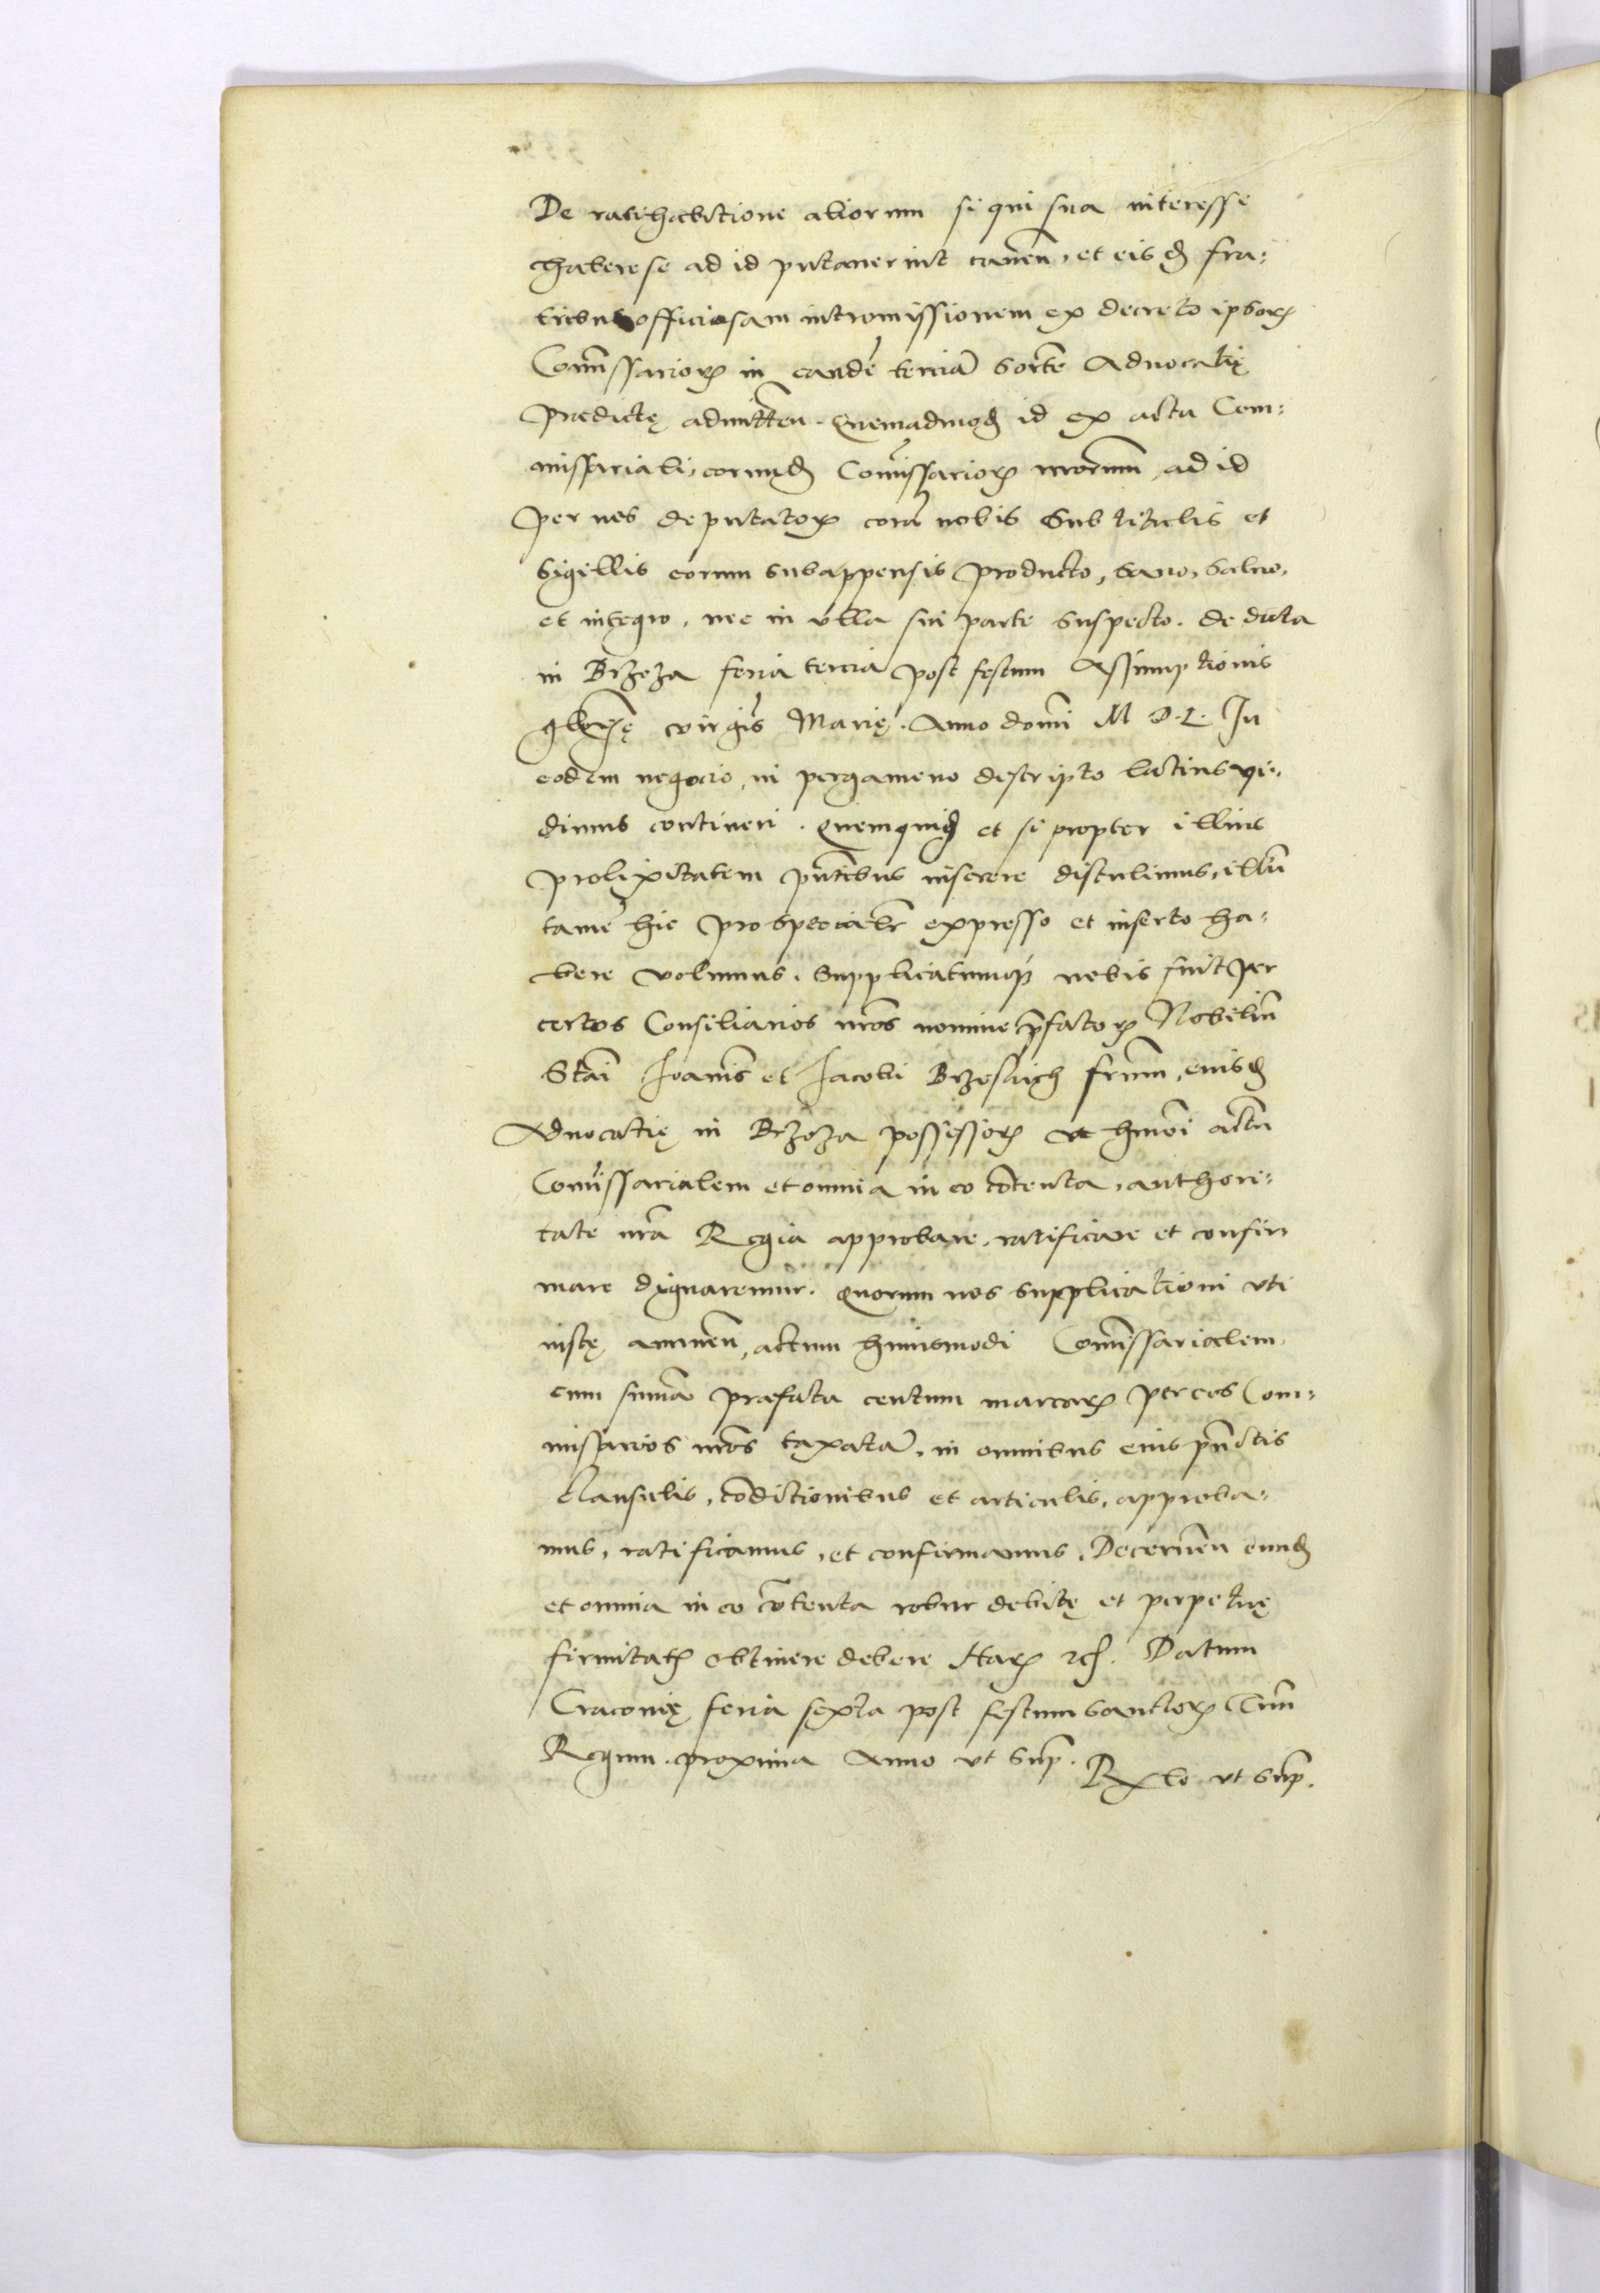 De ratihabitione aliorum si qui sua interesse
haberese ad id putauerint cauen̄. et eisdꝫ fra:
tribus officiosam intromissionem ex decreto ipsorꝝ
Com̄issariorꝝ in eandē terciā sortē Aduocatię
Prędictę admitteñ. Quemadmodꝫ id ex actu Com:
missariali, eorundꝫ Com̄issariorꝝ nr̄orum, ad id
per nos deputatorꝝ corā nobis sub titulis et
sigillis eorum subappensis producto, sano, saluo,
et integro, nec in vlla sui parte suspecto. de data
in Brzoza feria tercia post festum Assumptionis
glorisę virgīs Marię. Anno domī M D. L. In
eodem negocio, in pergameno descripto latius vi:
dimus contineri. Quemquidꝫ et si propter illius
prolixitatem pn̄tibus inserere distulimus, illū
tamē hic pro specialr̄ expresso et inserto ha:
bere volumus. Supplicatumqꝫ nobis fuit per
certos Consiliarios nr̄os nomine p̄fatorꝝ Nobiliū
Stāi Ioannīs et Iacobi Brzeskich fr̄um, eiusdꝫ
Aduocatię in Brzoza possessorꝝ vt hm̄oi actū
Com̄issarialem et omnia in eo cōtenta, authori:
tate nr̄a Regia approbare, ratificare et confir
mare dignaremur. Quorum nos supplicationi vti
iustę annuen̄, actum huiusmodi Com̄issarialem
cum sum̄a praefata centum marcarꝝ per eos Com:
missarios nr̄os taxatā, in omnibus eius pūctis
clausulis, cōditionibus et articulis, approba:
mus, ratificamus, et confirmamus, Decernen̄ eundꝫ
et omnia in eo cōtenta robur debitę et perpetuę
firmitatꝭ obtinere debere Harꝝ ꝛcꝭ. Datum
Cracouię feria sexta post festum sanctorꝝ Triū
Regum. proxima Anno vt supͣ.
Rͣlo vt supͣ.